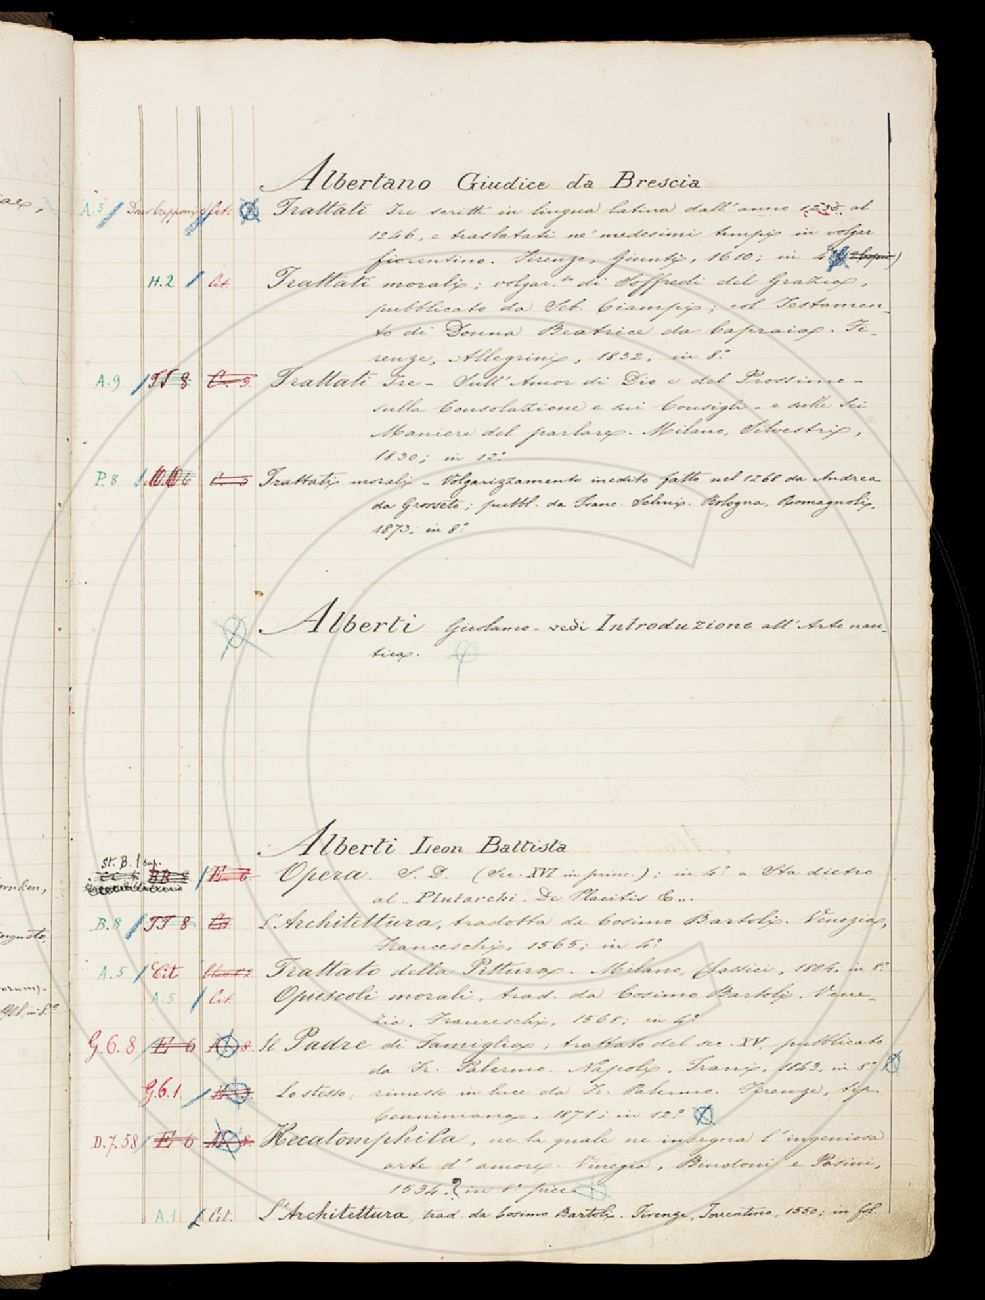 Albertano Giudice da Brescia
A.5 Cit. Trattati Tre scritti in lingua latina dall'anno 1235 al
1246, e traslatati ne' medesimi tempi in volgar
fiorentino. Firenze, Giunti, 1610; in 4°
H.2 Cit. Trattati morali; volgar.ti di Soffredi del Grazia,
pubblicato da Seb. Ciampi; col Testamen-
to di Donna Beatrice da Capraia. Fi-
renze, Allegrini, 1832. in 8°
A.9 TT 8 C. 3. Trattati Tre - Sull'Amor di Dio e del Prossimo -
sulla Consolazione e sui Consigli - e sulle Sei
Maniere del parlare. Milano, Silvestri,
1830; in 12°
P.8 C. 3 Trattati morali - Volgarizzamento inedito fatto nel 1268 da Andrea
da Grosseto; pubbl. da Franc. Selmi. Bologna, Romagnoli,
1873. in 8°
Alberti Girolamo - vedi Introduzione all'Arte nau-
tica.
Alberti Leon Battista
St. B. 1 sup.
BB 8 E. 6 Opera. S. D. (Sec. XVI in princ.); in 4° - Sta dietro
al - Plutarchi. De Placitis &..
B.8 TT 8 L'Architettura, tradotta da Cosimo Bartoli. Venezia,
Franceschi, 1565; in 4°
A.5 Cit Trattato della Pittura. Milano, Classici, 1804. in 8°
A 5 Cit Opuscoli morali, trad. da Cosimo Bartoli. Vene-
zia, Franceschi, 1568; in 4°
G.6.8 E 6 Il Padre di Famiglia; trattato del sec. XV, pubblicato
da Fr. Palermo. Napoli, Trani, 1843, in 8°
G.6.1. Lo stesso, rimesso in luce da Fr. Palermo. Firenze, tip.
Cenniniana, 1871; in 12°
D.7.58 E 6 Hecatomphila, ne la quale ne insegna l'ingeniosa
arte d'amore. Vinegia, Bindoni e Pasini,
1534.? in 8° picc.
A.1 Cit. L'Architettura, trad. da Cosimo Bartoli. Firenze, Torrentino, 1550; in fol.